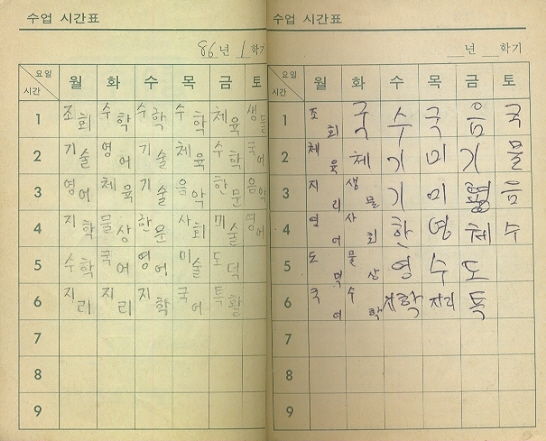 수업 시간표
86년 1학기
요일 시간 월 화 수 목 금 토
1 조회 수학 수학 수학 체육 생물
2 기술 영어 기술 체육 수학 국어
3 영어 체육 기술 음악 한문 음악
4 지학 물상 한문 사회 미술 영어
5 수학 국어 영어 미술 도덕
6 지리 지리 지학 국어 특활
7
8
9
수업 시간표
년 학기
요일 시간 월 화 수 목 금 토
1 조회 국 수 국 음 국
2 체육 체 기 미 기 물
3 지리 생물 기 미 음
4 영어 사회 한 영 체 수
5 도덕 물상 영 수 도
6 국어 수학 지학 지리 특
7
8
9